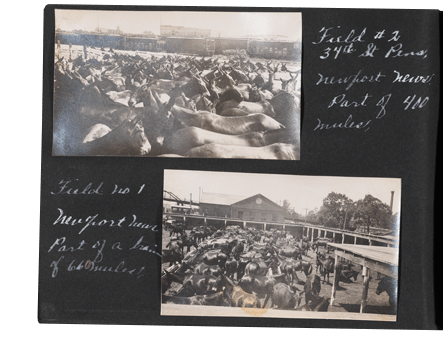 Field #2
34th St Pens,
Newport News
Part of 400
mules,
Field no 1
Newport News
Part of a train
of 660 mules,